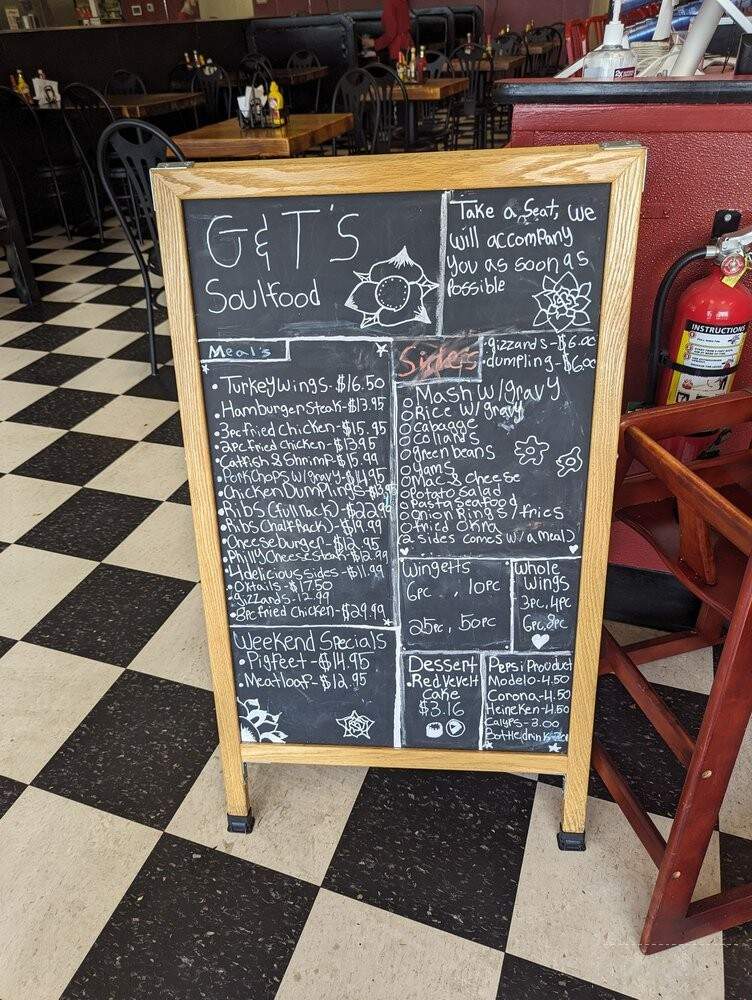 G & T'S
Soulfood
Take a Seat, we
will accompany
you as soon as
Possible
Meal's
• Turkey wings - $16.50
• Hamburger steak - $13.95
• 3pc fried chicken - $15.95
• 2pc fried chicken - $13.95
• Catfish & Shrimp - $15.99
• Pork Chops w/gravy - $14.95
• Chicken Dumplings
• Ribs (full rack) - $22.9
• Ribs (half Rack) - $19.99
• Cheese burger - $
• Philly Cheese steak - $12.99
• 4 delicious sides - $11.99
• Oxtails - $17.50
• Gizzards - 12.99
• 8pc fried Chicken - $29.99
Sides
• gizzards - $6.00
• dumpling - $6.00
Mash w/gravy
Rice w/ gravy
cabagge
collards
green beans
yams
Mac & cheese
potato salad
Pasta Seafood
onion Rings / fries
fried okra
(2 sides comes w/ a meal)
Wingetts
6pc , 10pc
25pc, 50pc
Whole
Wings
3pc, 4pc
6pc, 8pc
Weekend Specials
• Pigfeet - $14.95
• Meatloaf - $12.95
Dessert
• Red Velvelt
Cake
$3.16
Pepsi Product
Modelo - 4.50
Corona - 4.50
Heineken - 4.50
Calyps - 3.00
Bottle drink
INSTRUCTIONS